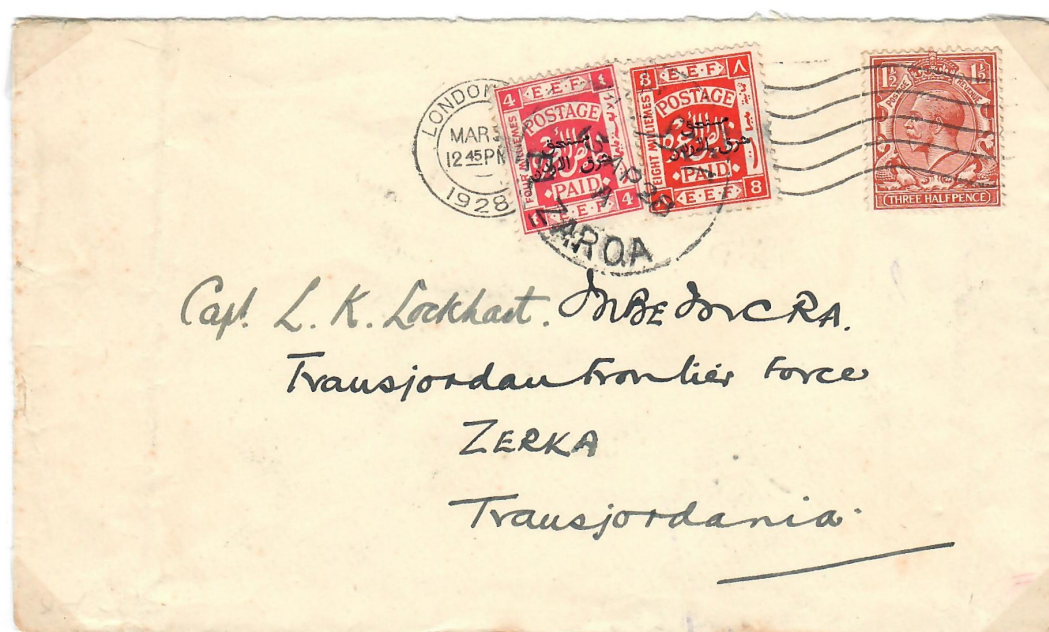 LONDON
MAR
12 45 PM
1928
4 E.E.F 4
POSTAGE
FOUR MILLIEMES
PAID
E.E.F 4
8 E.E.F ٨
POSTAGE
EIGHT MILLIEMES
شرق الاردن
PAID
E.E.F 8
ZARQA
1½ 1½
POSTAGE REVENUE
THREE HALFPENCE
Capt. L. K. Lockhart. MBE MC RA.
Transjordan Frontier Force
ZERKA
Transjordania.